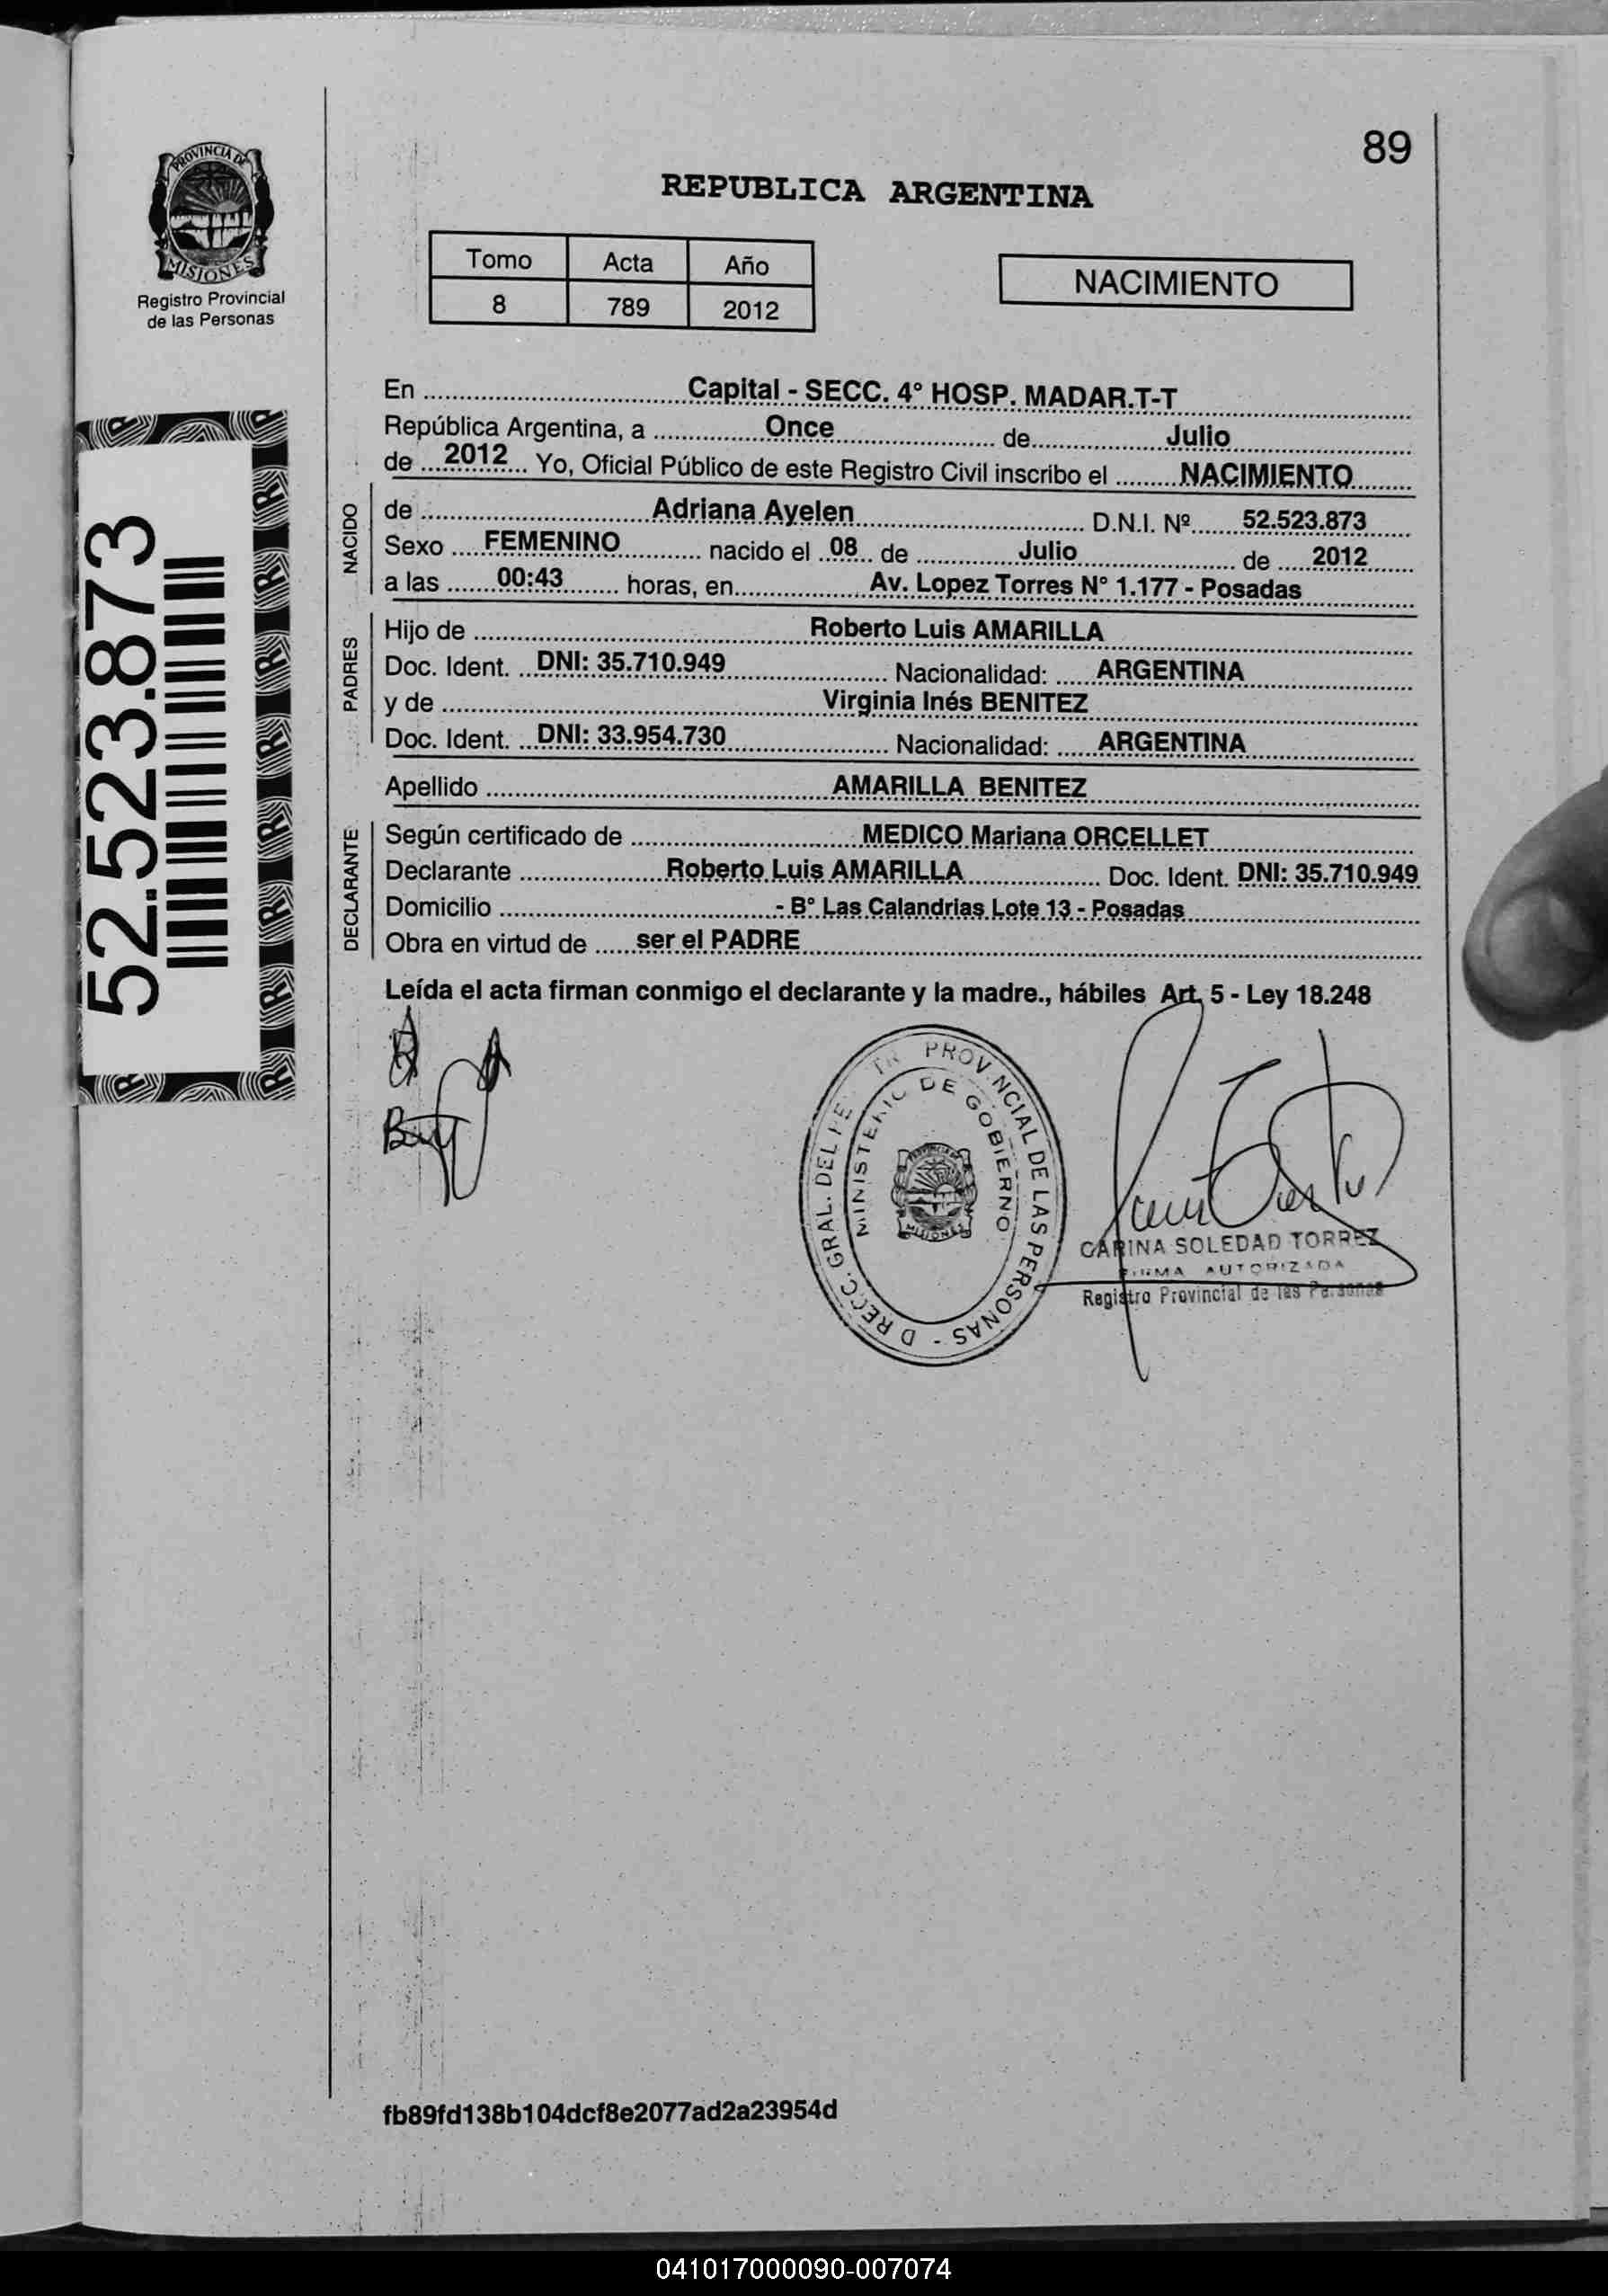 89
REPUBLICA ARGENTINA
PROVINCIA DE
MISIONES
Registro Provincial
de las Personas
Tomo Acta Año
8 789 2012
NACIMIENTO
En Capital - SECC. 4º HOSP. MADAR.T-T
República Argentina, a Once de Julio
de 2012 Yo, Oficial Público de este Registro Civil inscribo el NACIMIENTO
NACIDO
de Adriana Ayelen D.N.I. Nº 52.523.873
Sexo FEMENINO nacido el 08 de Julio de 2012
a las 00:43 horas, en Av. Lopez Torres Nº 1.177 - Posadas
PADRES
Hijo de Roberto Luis AMARILLA
Doc. Ident. DNI: 35.710.949 Nacionalidad: ARGENTINA
y de Virginia Inés BENITEZ
Doc. Ident. DNI: 33.954.730 Nacionalidad: ARGENTINA
Apellido AMARILLA BENITEZ
DECLARANTE
Según certificado de MEDICO Mariana ORCELLET
Declarante Roberto Luis AMARILLA Doc. Ident. DNI: 35.710.949
Domicilio - Bº Las Calandrias Lote 13 - Posadas
Obra en virtud de ser el PADRE
Leída el acta firman conmigo el declarante y la madre., hábiles Art. 5 - Ley 18.248
52.523.873
PROVINCIAL DE LAS PERSONAS
MINISTERIO DE GOBIERNO
MISIONES
CARINA SOLEDAD TORREZ
FIRMA AUTORIZADA
Registro Provincial de las Personas
fb89fd138b104dcf8e2077ad2a23954d
041017000090-007074